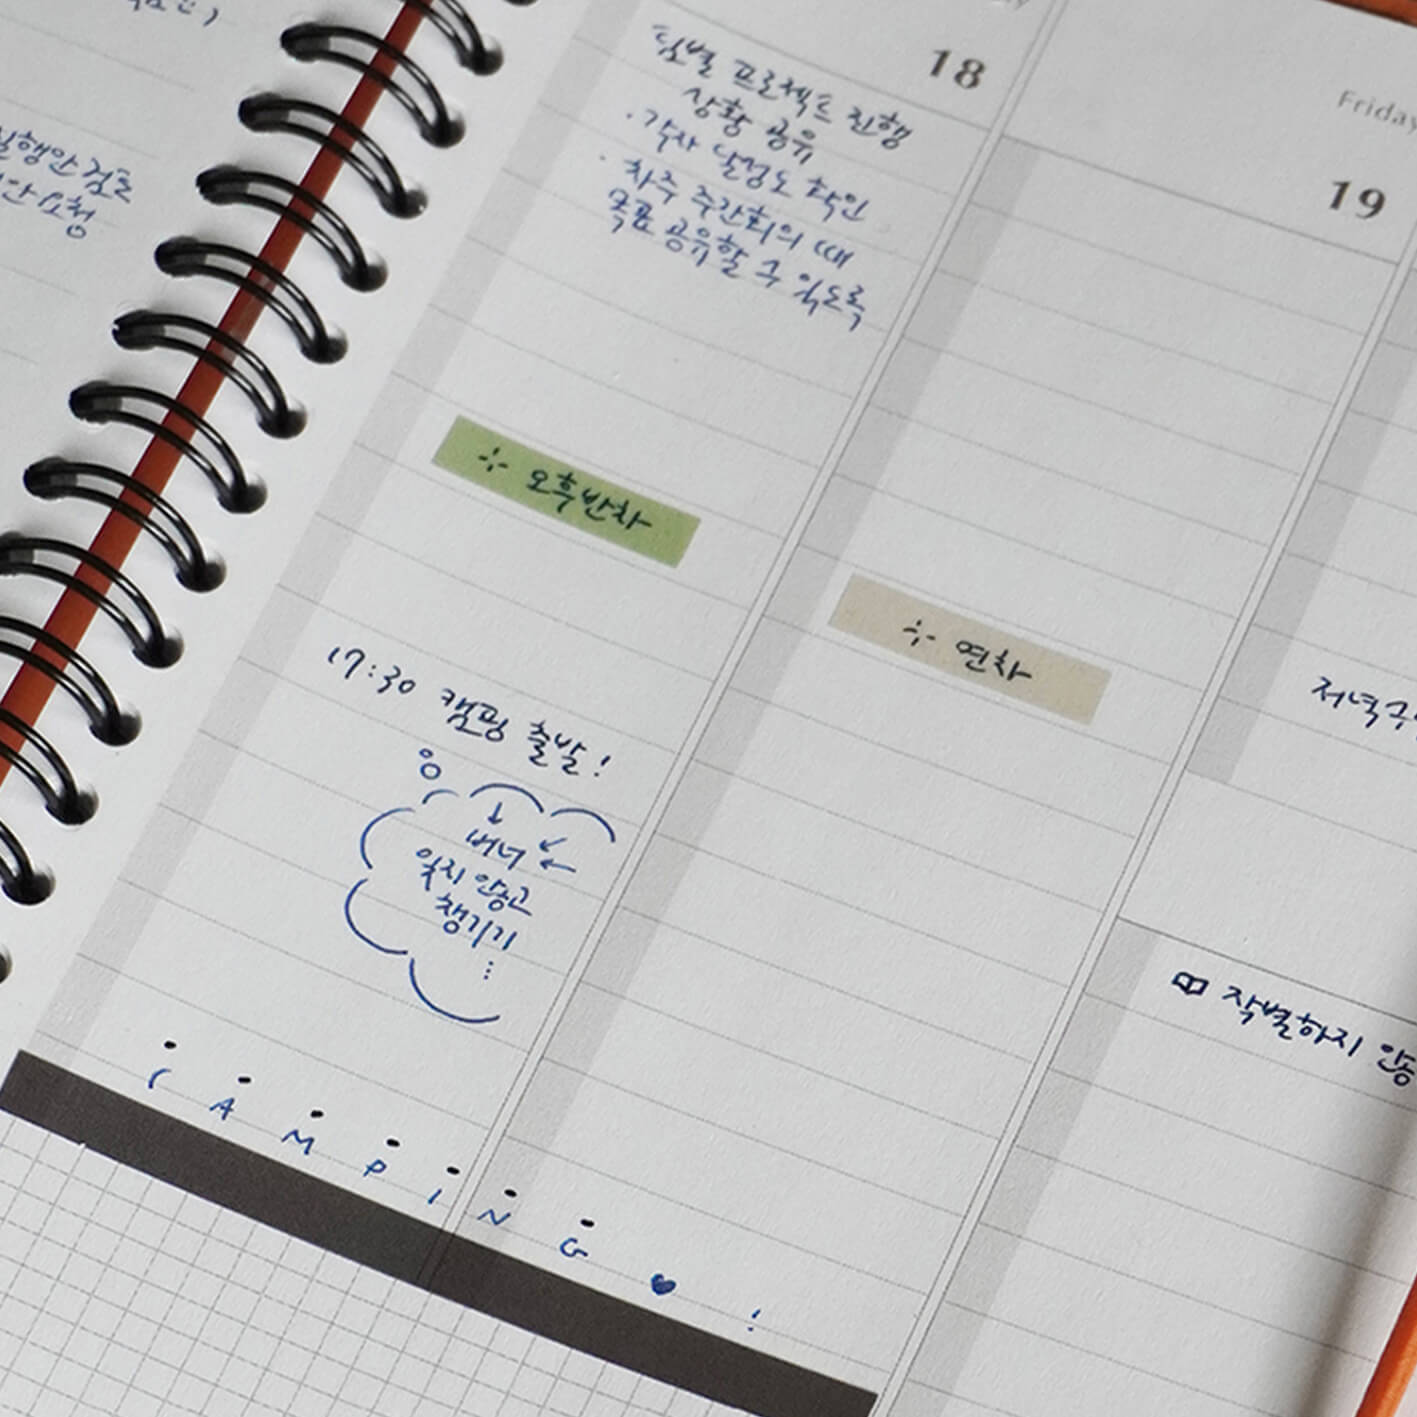 실행안 검토
안 요청
18
팀별 프로젝트 진행
상황 공유
· 각자 달성도 확인
· 차주 주간회의 때
목표 공유할 수 있도록
÷ 오후반차
17:30 캠핑 출발!
버너
잊지 않고
챙기기
CAMPING ♥ !
Friday
19
÷ 연차
저녁
작별하지 않